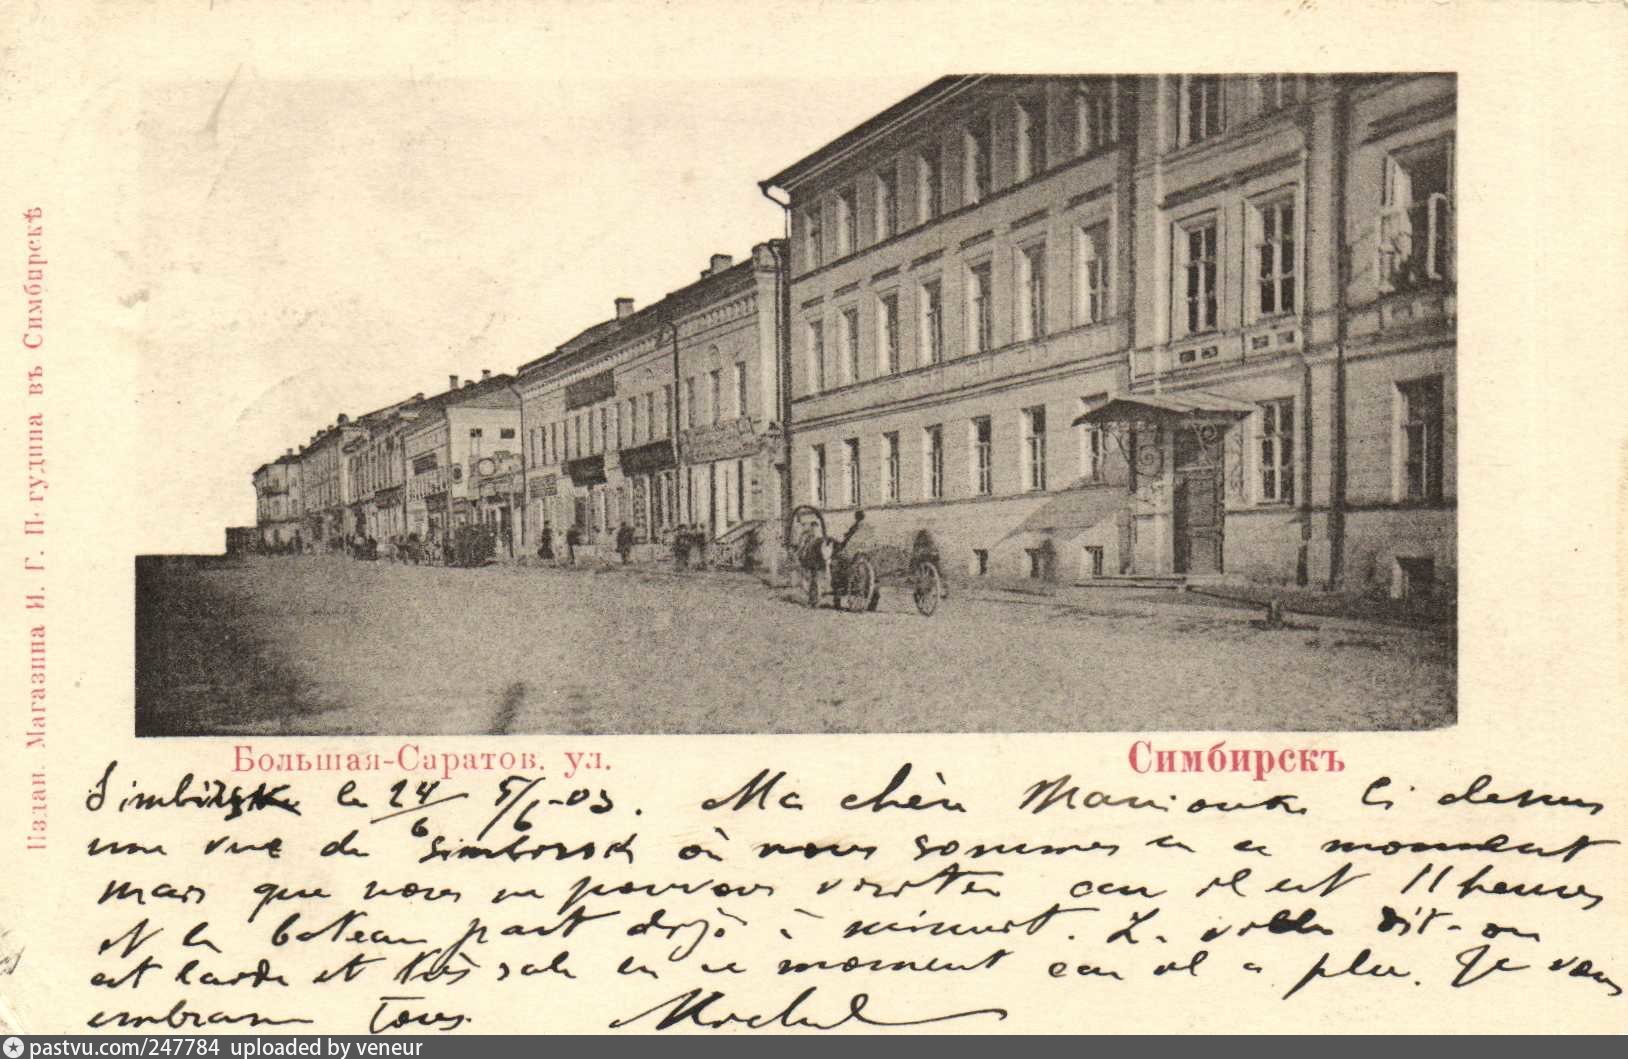 Издан. Магазина И. Г. Пигудина въ Симбирскѣ
Большая-Саратов. ул.
Симбирскъ
Simbirsk le 24/6 03. Ma chère ci dessus
une vue de Simbirsk où nous sommes en ce moment
mais que nous ne pouvons visiter car il est 11 heures
et le bateau part déjà à minuit. La ville dit-on
est laide et très sale en ce moment car il a plu. Je vous
embrasse tous. Michel
pastvu.com/247784 uploaded by veneur